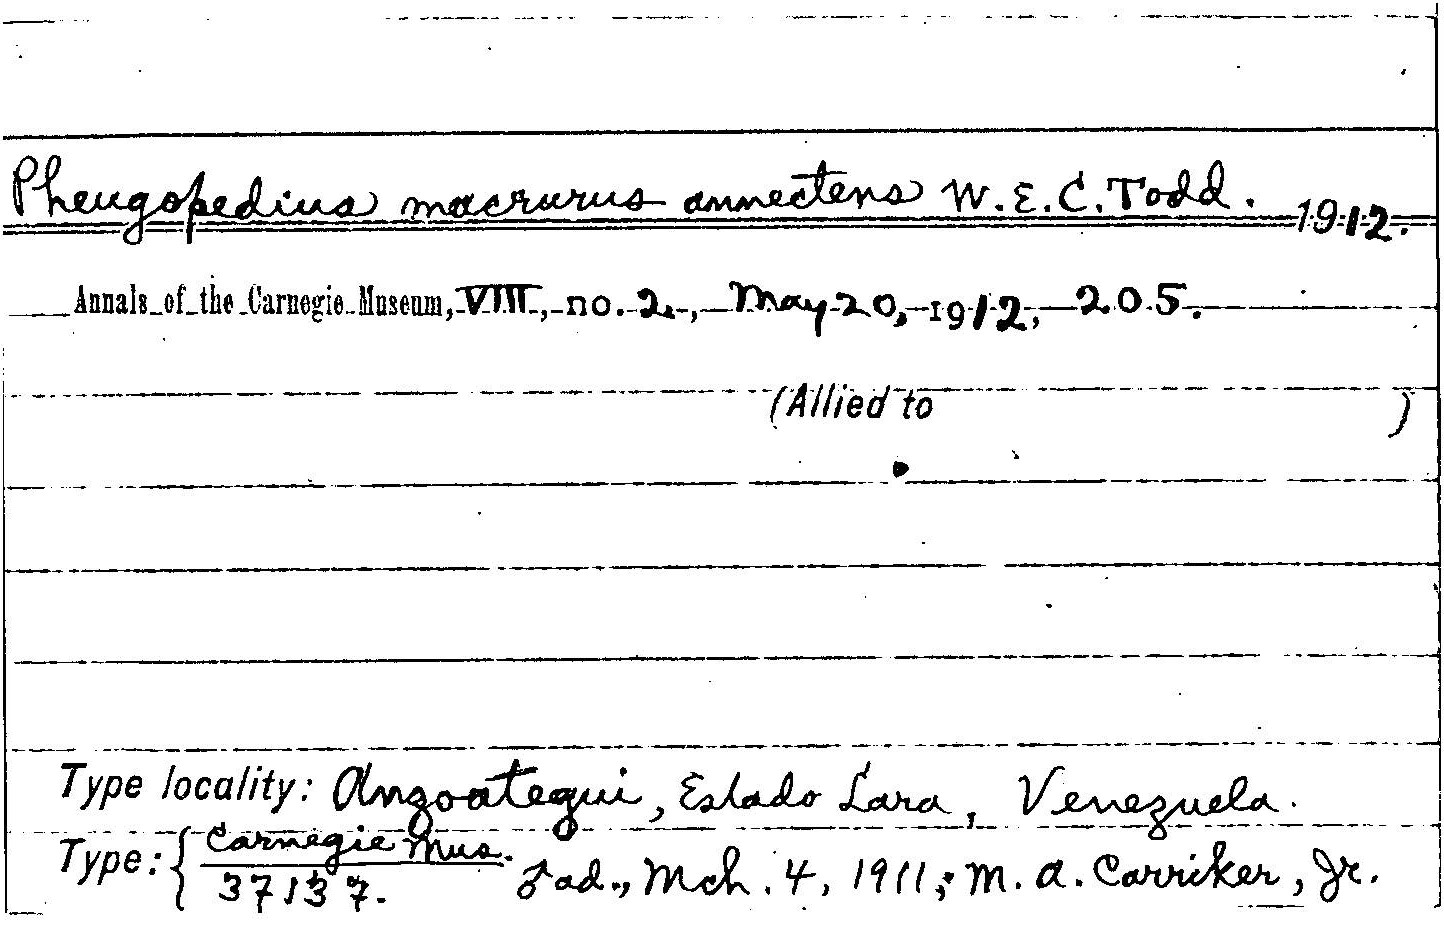 Pheugopedius macrurus annectens W.E.C. Todd. 1912.
Annals of the Carnegie Museum, VIII, no. 2, May 20, 1912, 205.
(Allied to )
Type locality: Anzoategui, Estado Lara, Venezuela.
Type: { Carnegie Mus.
37137. ♂ ad., Mch. 4, 1911; M. A. Carriker, Jr.